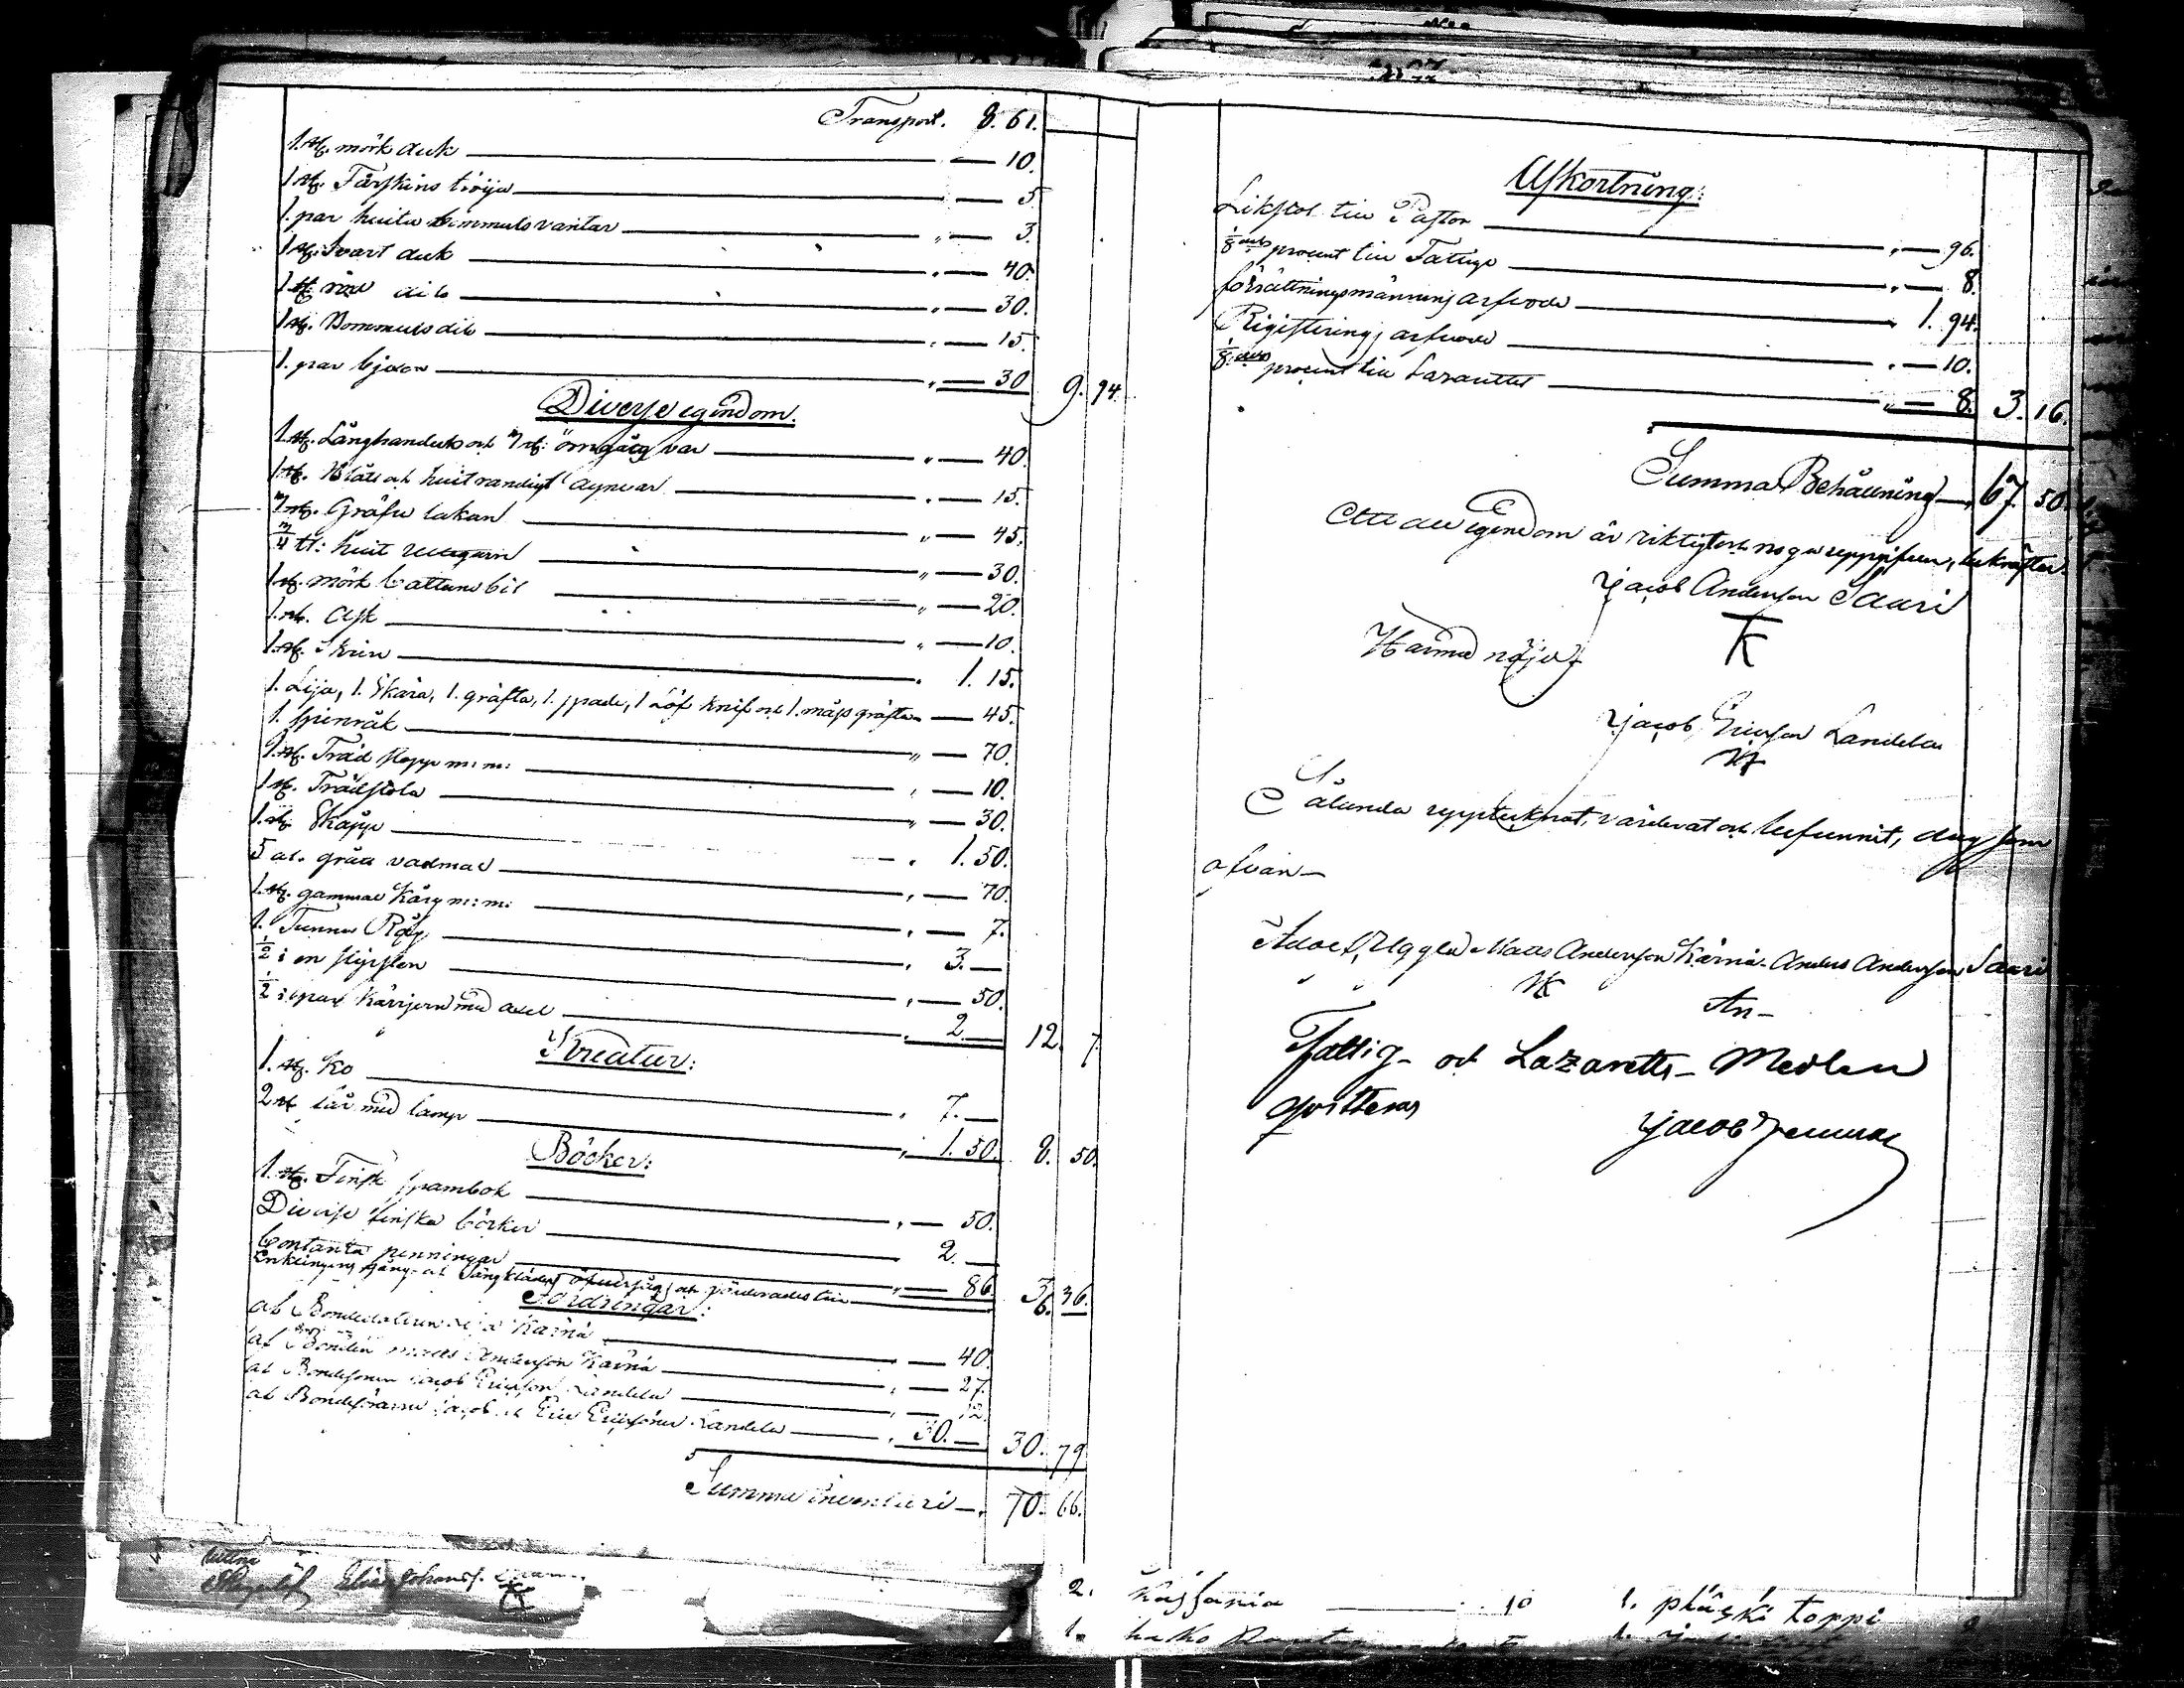 Transport. 8. 61.
1. st. mörk duk — 10.
1 st. Fårskins tröija — 5.
1. par huita bommuls vantar — 3.
1 st. Svart duk — 40.
1 st. röd dito — 30.
1 st. Bommuls dito — 15.
1. par — 30 9. 94.
Diverse egendom.
1 st. Långhanduk och örngåtz var — 40.
1 st. Blått och huit randigt — 15.
st. Gröfre lakan — 45.
huit ullgarn — 30.
1 st. mörk Cattuns bit — 20.
1. st. Ask — 10.
1. st. Skrin — 1. 15.
1. Lija, 1. Skära, 1. gräfta, 1. spade, 1 Löf knif och 1. måss gräfta — 45.
1. spinråk — 70.
st. Träd stopp m: m: — 10.
1 st. Trädstola — 30.
1. st. Skåpp — 1. 50.
5 al. grått vadmal — 70.
1. st. gammal Kärg m: m: — 7.
1. Tunna Råg — 3. —
½ i en — 50.
½ i par Kärrjern med axel — 2. — 12. 7.
Kreatur:
1. st. Ko — 7. —
2 st får med lamp — 1. 50. 8. 50.
Böcker:
1. st. Finsk psambok — 50.
Diverse finska böcker — 2. —
Contanta penningar — 86 3. 36.
Enklingens gång- och Sängkläder och värderades till 6.
Fordringar:
af Kärnä — 40.
af Bonden Matts Anderson Kärnä — 27.
af Bondesonen Jacob Ericsson Landela — 12.
af Bondesönerne Jacob och Eric Ericsöner Landela — 30. — 30. 79
Summa Inventarii — 70. 66.
Afkortning:
Likstol till Pastor — 96.
⅛ dels procent till Fattige — 8.
förrättningsmännens arfvode — 1. 94.
Registerings arfvode — 10.
⅛ dels procent till Lazarettet — 8. 3. 16.
Summa Behållning — 67. 50.
Att all egendom är riktigt och noga uppgifven, bekräftar.
Jacob Anderson Sauri
Härmed nöjd
Jacob Ericson Landela
Sålunda upptecknat, värderat och befunnit, dag som
ofvan —
Adolf Uggla Matts Anderson Kärnä. Anders Anderson Sauri
Fattig- och Lazaretts- Medlen
qvitteras
Jacob
Elias Johans.
2. — 10 1. pläski toppi
1.